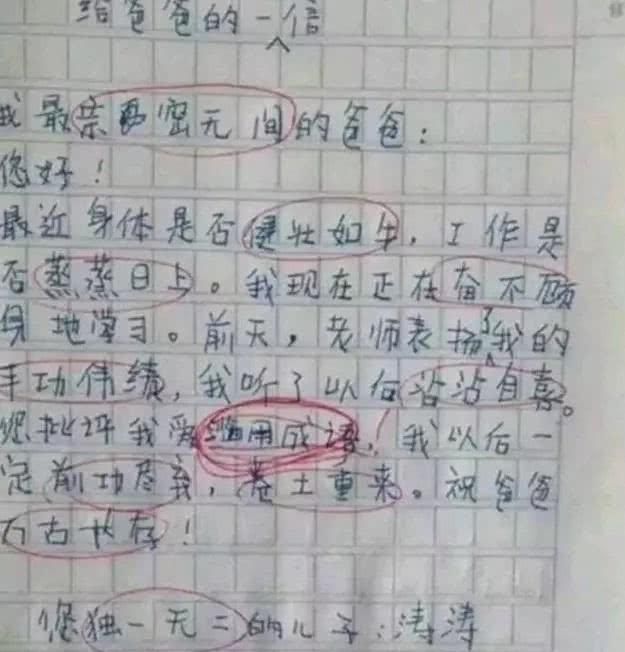 给爸爸的一信
我最亲密无间的爸爸:
您好!
最近身体是否健壮如牛,工作是
否蒸蒸日上。我现在正在奋不顾
身地学习。前天,老师表扬了我的
丰功伟绩,我听了以后沾沾自喜。
您批评我爱滥用成语,我以后一
定前功尽弃,卷土重来。祝爸爸
万古长存!
您独一无二的儿子:涛涛